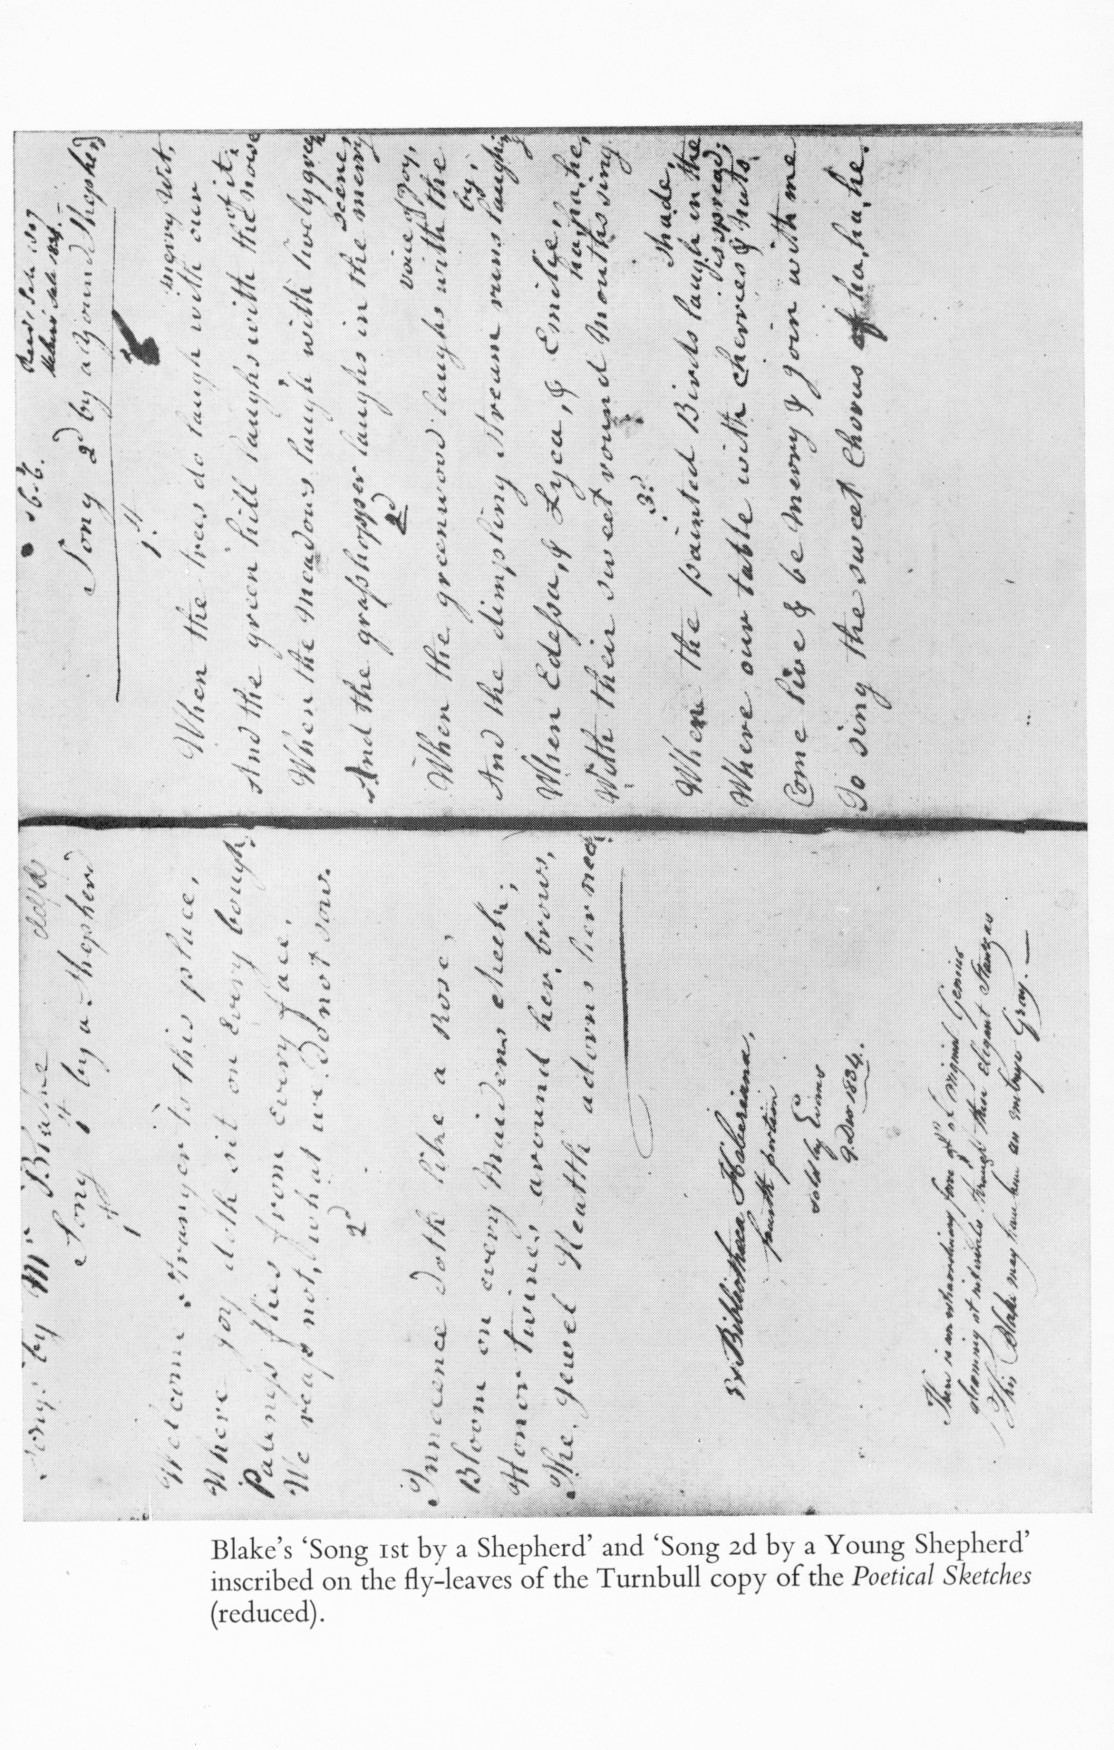 Songs by Mr Blake
Song 1st by a Shepherd
1
Welcome Stranger to this place,
Where joy doth sit on Every bough,
Paleness flies from Every face.
We reap not, what we do not sow.
2d
Innocence doth like a Rose,
Bloom on every Maidens cheek;
Honor twines around her brows,
The Jewel Health adorns her neck.
Ex Bibliotheca Heberiana,
fourth portion
sold by Evans
9 Decr 1834.
There is an extraordinary fame of original Genius
gleaming at intervals through these elegant Stanzas
This Blake may have been an embryo Gray.
Song 2d by a Young Shepherd
1st
When the trees do laugh with our merry wit,
And the green hill laughs with the noise of it.
When the meadows laugh with lively green
And the grasshopper laughs in the merry scene,
2d
When the greenwood laughs with the voice of joy,
And the dimpling stream runs laughing by,
When Edessa, & Lyca, & Emilie,
With their sweet round Mouths sing ha, ha, he,
3d
Where the painted Birds laugh in the shade,
Where our table with cherries & nuts is spread;
Come live & be merry & join with me
To sing the sweet Chorus of ha, ha, he.
Blake's 'Song 1st by a Shepherd' and 'Song 2d by a Young Shepherd'
inscribed on the fly-leaves of the Turnbull copy of the Poetical Sketches
(reduced).